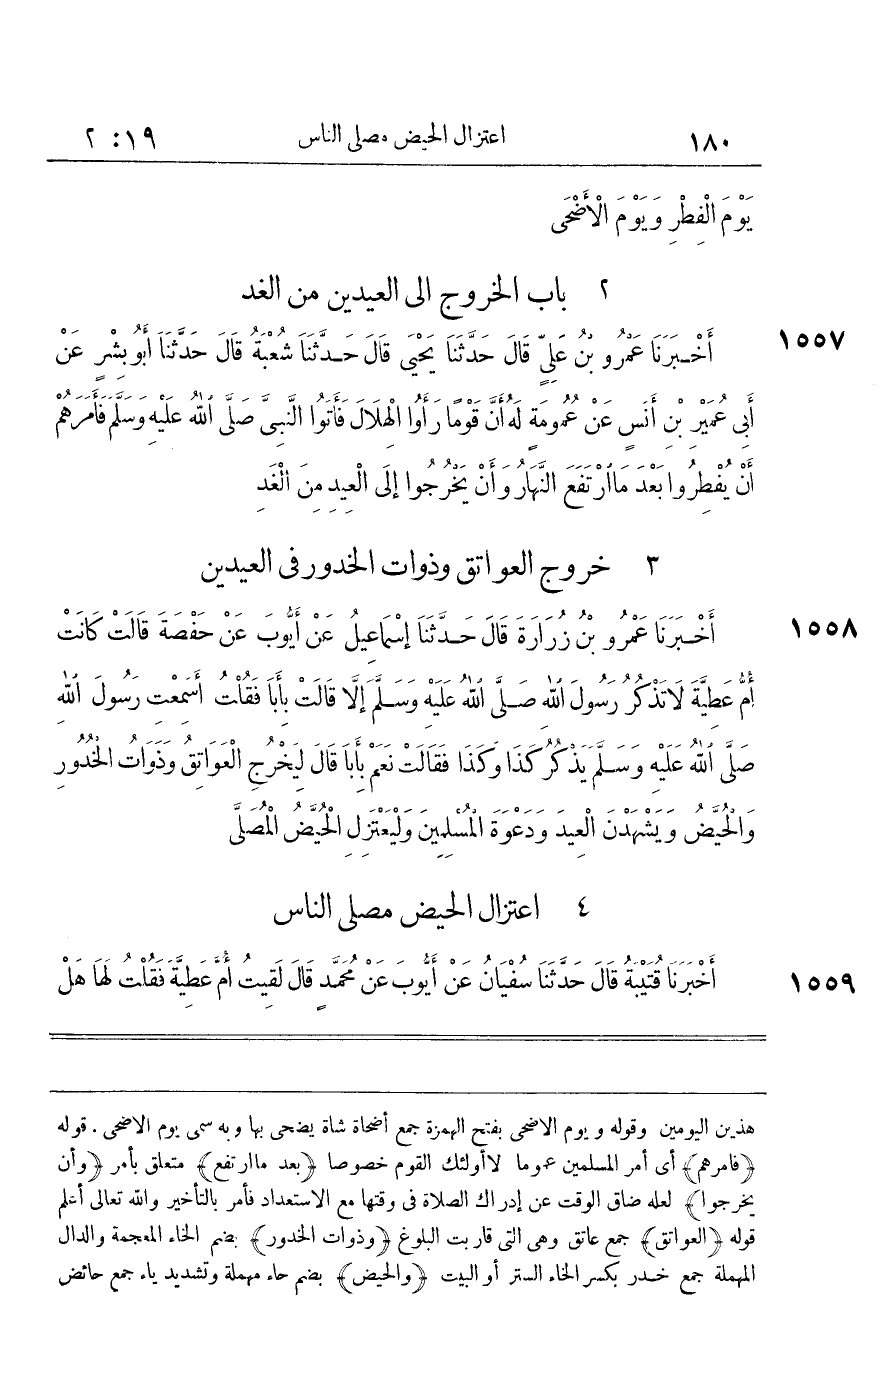 ١٨٠ اعتزال الحيض مصلى الناس ١٩: ٢
يَوْمَ الْفِطْرِ وَيَوْمَ الْأَضْحَى
٢ باب الخروج الى العيدين من الغد
١٥٥٧ أَخْبَرَنَا عَمْرُو بْنُ عَلِيٍّ قَالَ حَدَّثَنَا يَحْيَى قَالَ حَدَّثَنَا شُعْبَةُ قَالَ حَدَّثَنَا أَبُو بِشْرٍ عَنْ
أَبِي عُمَيْرِ بْنِ أَنَسٍ عَنْ عُمُومَةٍ لَهُ أَنَّ قَوْمًا رَأَوُا الْهِلَالَ فَأَتَوُا النَّبِيَّ صَلَّى اللهُ عَلَيْهِ وَسَلَّمَ فَأَمَرَهُمْ
أَنْ يُفْطِرُوا بَعْدَ مَا ارْتَفَعَ النَّهَارُ وَأَنْ يَخْرُجُوا إِلَى الْعِيدِ مِنَ الْغَدِ
٣ خروج العواتق وذوات الخدور فى العيدين
١٥٥٨ أَخْبَرَنَا عَمْرُو بْنُ زُرَارَةَ قَالَ حَدَّثَنَا إِسْمَاعِيلُ عَنْ أَيُّوبَ عَنْ حَفْصَةَ قَالَتْ كَانَتْ
أُمُّ عَطِيَّةَ لَا تَذْكُرُ رَسُولَ اللهِ صَلَّى اللهُ عَلَيْهِ وَسَلَّمَ إِلَّا قَالَتْ بِأَبَا فَقُلْتُ أَسَمِعْتِ رَسُولَ اللهِ
صَلَّى اللهُ عَلَيْهِ وَسَلَّمَ يَذْكُرُ كَذَا وَكَذَا فَقَالَتْ نَعَمْ بِأَبَا قَالَ لِيَخْرُجِ الْعَوَاتِقُ وَذَوَاتُ الْخُدُورِ
وَالْحُيَّضُ وَيَشْهَدْنَ الْعِيدَ وَدَعْوَةَ الْمُسْلِمِينَ وَلْيَعْتَزِلِ الْحُيَّضُ الْمُصَلَّى
٤ اعتزال الحيض مصلى الناس
١٥٥٩ أَخْبَرَنَا قُتَيْبَةُ قَالَ حَدَّثَنَا سُفْيَانُ عَنْ أَيُّوبَ عَنْ مُحَمَّدٍ قَالَ لَقِيتُ أُمَّ عَطِيَّةَ فَقُلْتُ لَهَا هَلْ
هذين اليومين وقوله و يوم الاضحى بفتح الهمزة جمع أضحاة شاة يضحى بها وبه سمى يوم الاضحى . قوله
﴿فامرهم﴾ أى أمر المسلمين عموما لا أولئك القوم خصوصا ﴿بعد ما ارتفع﴾ متعلق بأمر ﴿وأن
يخرجوا﴾ لعله ضاق الوقت عن إدراك الصلاة فى وقتها مع الاستعداد فأمر بالتأخير والله تعالى أعلم
قوله ﴿العواتق﴾ جمع عاتق وهى التى قاربت البلوغ ﴿وذوات الخدور﴾ بضم الخاء المعجمة والدال
المهملة جمع خدر بكسر الخاء الستر أو البيت ﴿والحيض﴾ بضم حاء مهملة وتشديد ياء جمع حائض